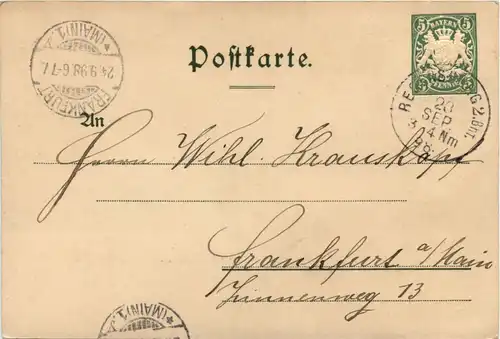 FRANKFURT
24.9.98.6-7
(MAIN) 1
Postkarte.
5 BAYERN 5
5 PFENNIG 5
RE G 2.Bhf.
SEP
4 Nm
98
An
Herrn Wilh. Hrauskopf
Frankfurt a/Main
Zinnenweg 13
(MAIN) 1